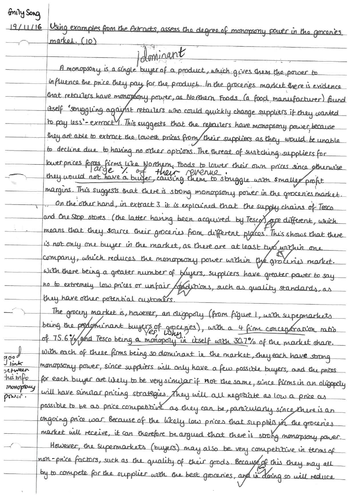 Emily Song
19/11/16 Using examples from the Extracts, assess the degree of monopsony power in the groceries
market. (10)
dominant
A monopsony is a single buyer of a product, which gives them the power to
influence the price they pay for the product. In the groceries market there is evidence
that retailers have monopsony power, as Northern Foods (a food manufacturer) found
itself "struggling against retailers who could quickly change suppliers if they wanted
to pay less" - extract. This suggests that the retailers have monopsony power because
they are able to extract the lowest prices from their suppliers as they would be unable
to decline due to having no other options. The threat of switching suppliers for
lower prices forces firms like Northern Foods to lower their own prices since otherwise
large % of their revenue
they would not have a buyer, causing them to struggle with smaller profit
margins. This suggests that there is strong monopsony power in the groceries market.
On the other hand, in extract 3 it is explained that the supply chains of Tesco
and One Stop stores (the latter having been acquired by Tesco) are different, which
means that they source their groceries from different places. This shows that there
is not only one buyer in the market, as there are at least two within one
company, which reduces the monopsony power within the groceries market.
With there being a greater number of buyers, suppliers have greater power to say
no to extremely low prices or unfair conditions, such as quality standards, as
they have other potential customers.
The grocery market is, however, an oligopoly (from figure 1, with supermarkets
being the predominant buyers of groceries), with a 4 firm concentration ratio
of 75.6% and Tesco being a monopoly in itself with 30.7% of the market share.
very likely
With each of these firms being so dominant in the market, they each have strong
monopsony power, since suppliers will only have a few possible buyers, and the prices
for each buyer are likely to be very similar if not the same, since firms in an oligopoly
will have similar pricing strategies. They will all negotiate as low a price as
possible to be as price competitive as they can be, particularly since there is an
ongoing price war. Because of the likely low prices that suppliers in the groceries
market will receive, it can therefore be argued that there is strong monopsony power.
good
link
between
this info
monopsony
power.
However, the supermarkets (buyers) may also be very competitive in terms of
non-price factors, such as the quality of their goods. Because of this they may all
try to compete for the supplier with the best groceries, and in doing so will reduce